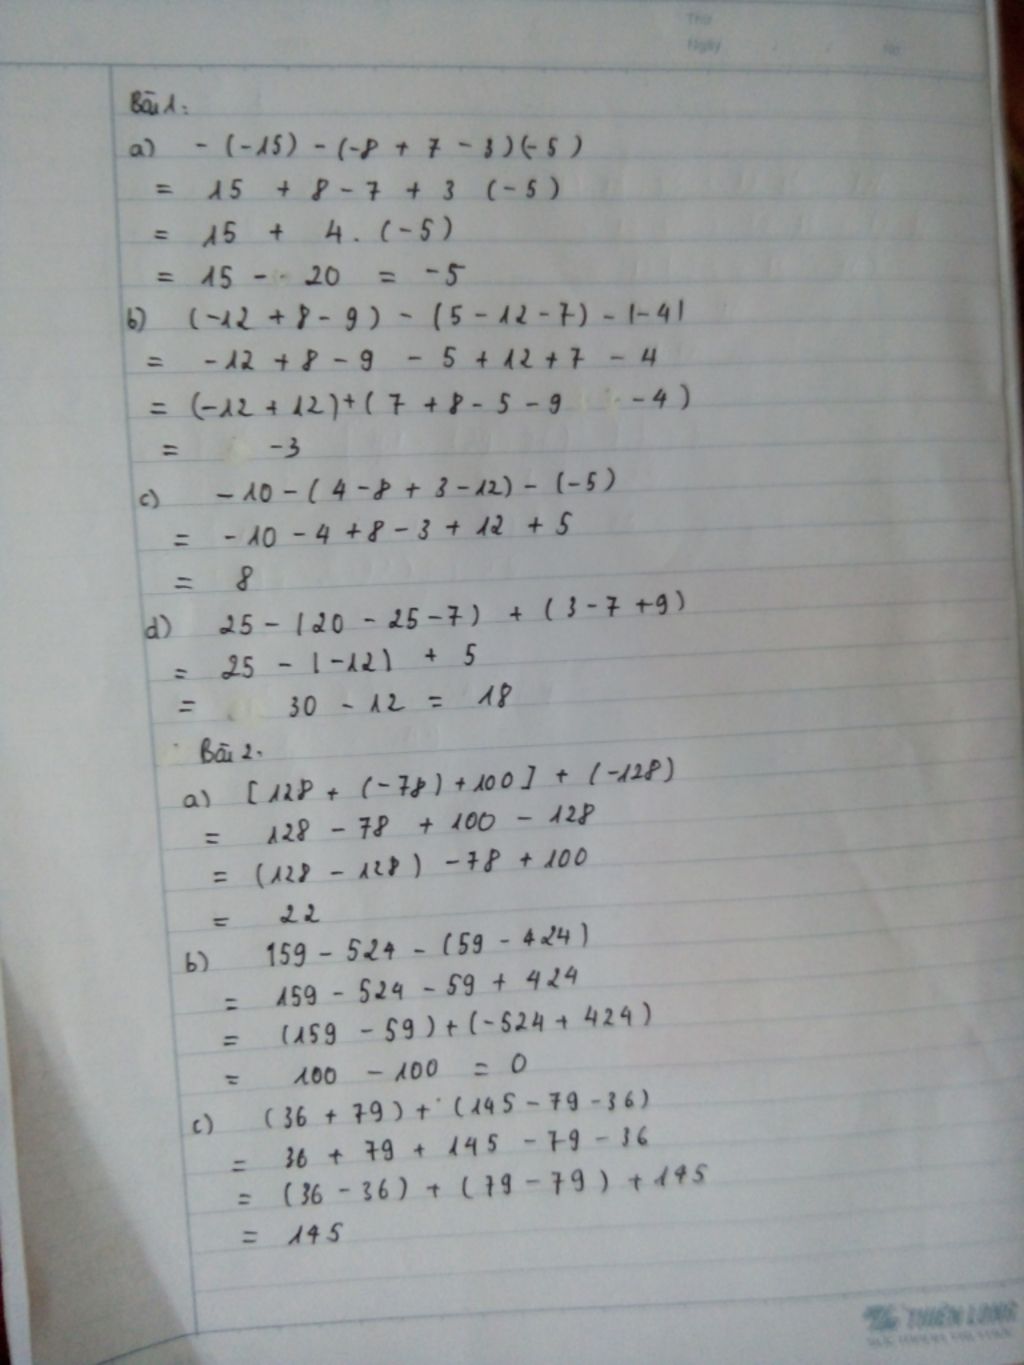 Thứ
Ngày / / No
Bài 1:
a) - (-15) - (-8 + 7 - 3)(-5)
= 15 + 8 - 7 + 3 (-5)
= 15 + 4. (-5)
= 15 - 20 = -5
b) (-12 + 8 - 9) - (5 - 12 - 7) - |-4|
= -12 + 8 - 9 - 5 + 12 + 7 - 4
= (-12 + 12) + (7 + 8 - 5 - 9 - 4)
= -3
c) - 10 - (4 - 8 + 3 - 12) - (-5)
= - 10 - 4 + 8 - 3 + 12 + 5
= 8
d) 25 - (20 - 25 - 7) + (3 - 7 + 9)
= 25 - (-12) + 5
= 30 - 12 = 18
Bài 2.
a) [128 + (-78) + 100] + (-128)
= 128 - 78 + 100 - 128
= (128 - 128) - 78 + 100
= 22
b) 159 - 524 - (59 - 424)
= 159 - 524 - 59 + 424
= (159 - 59) + (-524 + 424)
= 100 - 100 = 0
c) (36 + 79) + (145 - 79 - 36)
= 36 + 79 + 145 - 79 - 36
= (36 - 36) + (79 - 79) + 145
= 145
THIÊN LONG